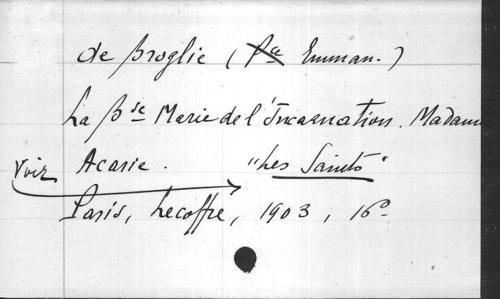 de Broglie (Pce Emman.)
La Bse Marie de l'Incarnation. Madame
voir Acarie. "Les Saints"
Paris, Lecoffre, 1903, 16º